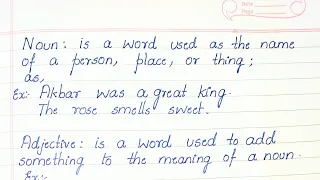 Date
Page
Noun: is a word used as the name
of a person, place, or thing;
as,
Ex:- Akbar was a great king.
The rose smells sweet.
Adjective: is a word used to add
something to the meaning of a noun.
Ex:-